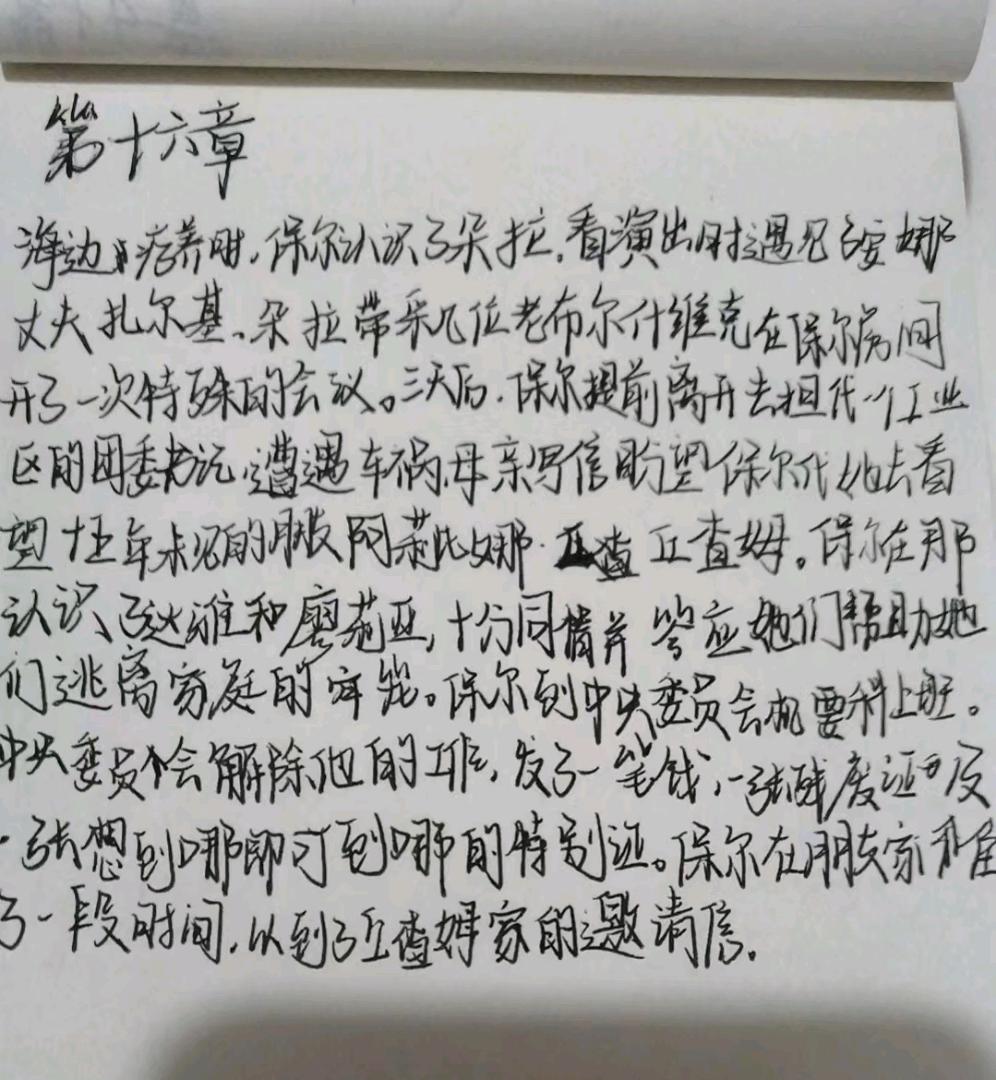 第十六章
海边疗养时,保尔认识了朵拉,看演出时遇见了安娜
丈夫扎尔基、朵拉带来几位老布尔什维克在保尔房间
开了一次特殊的会议。三天后,保尔提前离开去担代一个工业
区的团委书记,遭遇车祸,母亲写信盼望保尔代她去看
望十五年未见的朋友阿莱比娜·丘查姆。保尔在那
认识了达维和廖莉亚,十分同情并答应她们帮助她
们逃离家庭的牢笼。保尔到中央委员会机要科上班。
中央委员会解除他的工作,发了一笔钱,一张残废证及
一张想到哪即可到哪的特别证。保尔在朋友家住
了一段时间,收到了丘查姆家的邀请信。